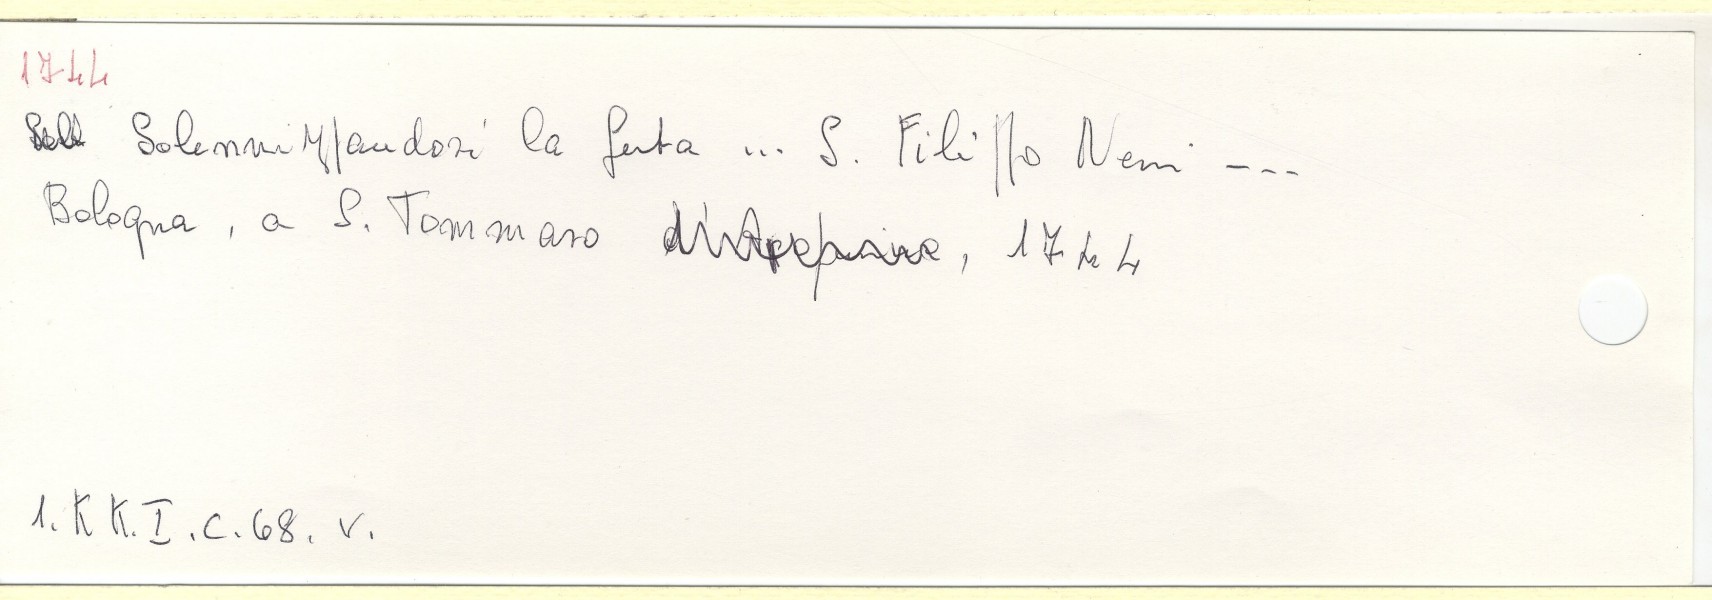 1744
Solennizzandosi la festa ... S. Filippo Neri ---
Bologna, a S. Tommaso d'Aquino, 1744
1.KK.I.c.68.v.